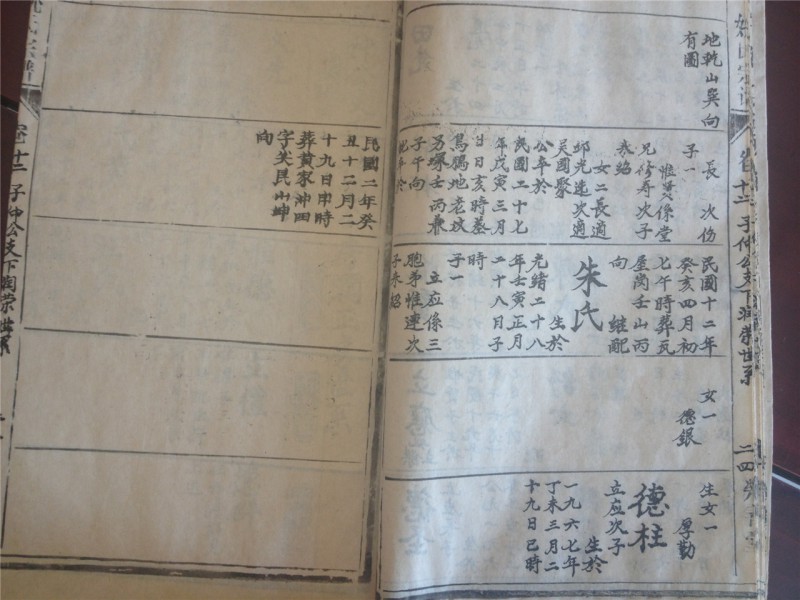 地乾山巽向
有圖
長次份
子一
惟贤係堂
兄修寿次子
女二長適
邱光連次適
吴國聚
公卒於
民國二十七
年戊寅三月
廿日亥時墓
子午向
民國二年癸
丑十二月二
十九日申時
葬黄家冲田
向
民國十二年
癸亥四月初
七午時葬瓦
屋崗壬山丙
向
继配
朱氏
生於
光绪二十八
年壬寅正月
二十八日子
時
子一
立应係三
胞弟惟連次
女一
德银
生女一
厚勤
德柱
立应次子
生於
一九六七年
丁未三月二
十九日巳時
卷十二子仲公支下
二四
卷十二子仲公支下